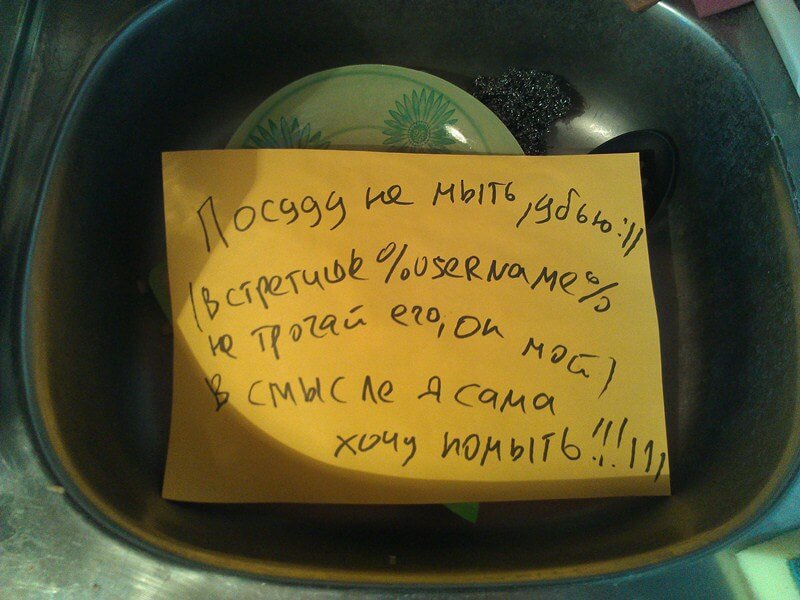 Посуду не мыть, убью:))
(встретишь %username%
не трогай его, он мой)
в смысле я сама
хочу помыть!!!111